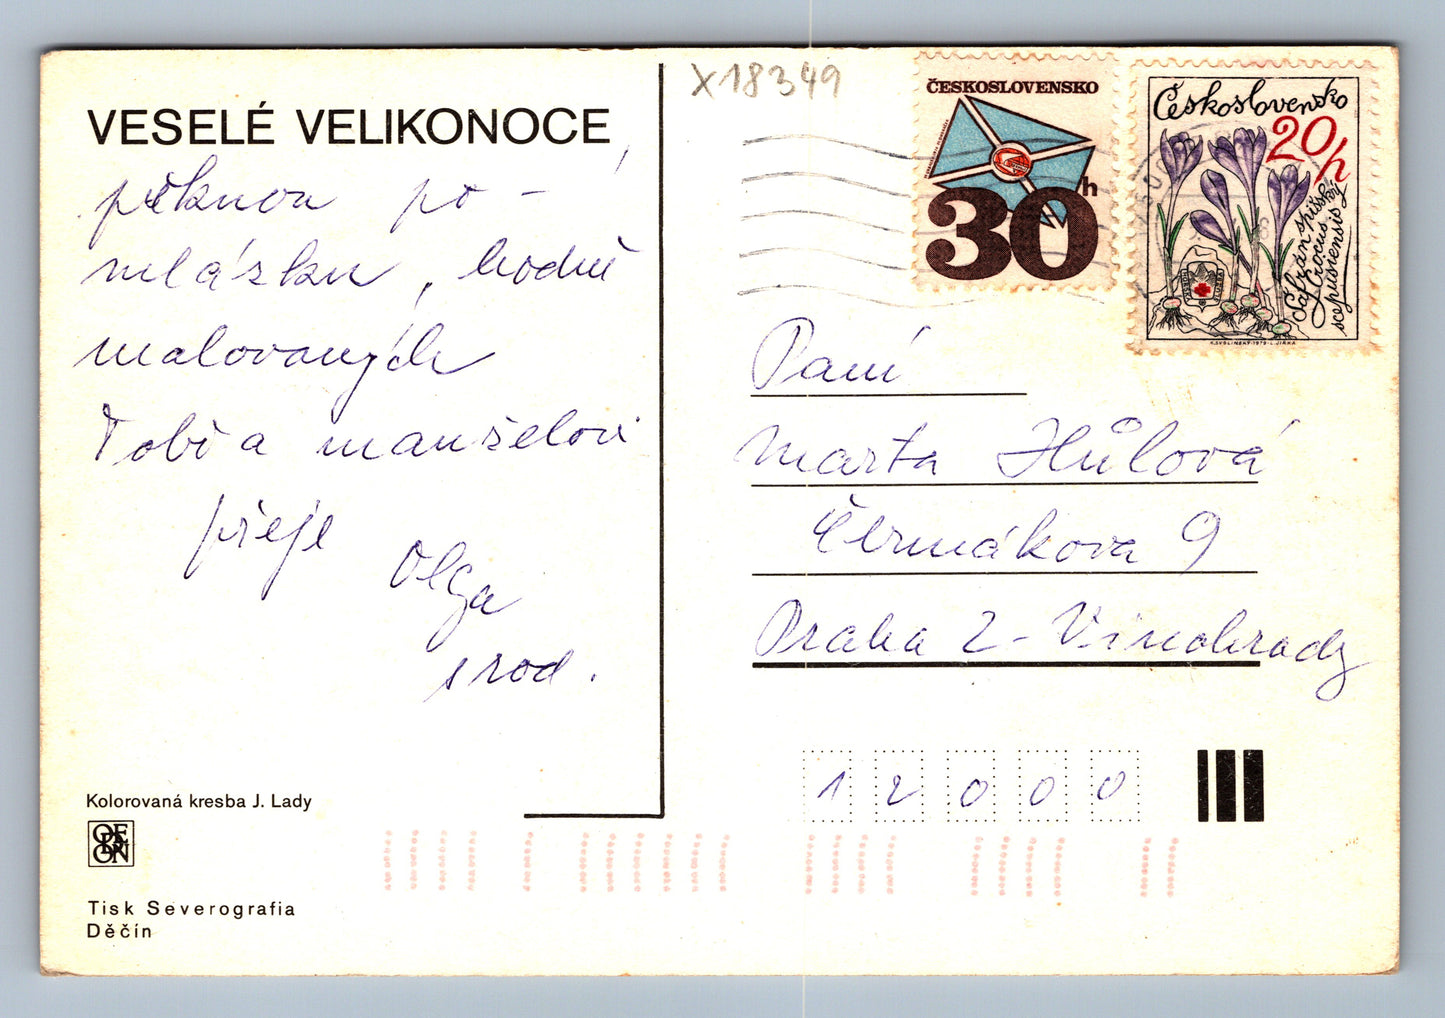 VESELÉ VELIKONOCE,
pěknou po-
mlázku, hodně
malovaných
Tobě a manželovi
přeje
Olga
s rod.
Kolorovaná kresba J. Lady
ODEON
Tisk Severografia
Děčín
X18349
ČESKOSLOVENSKO
30h
Československo
20h
Šafrán spišský
Crocus
scepusiensis
K.SVOLINSKÝ·1979·L.JIRKA
Paní
Marta Hůlová
Čermákova 9
Praha 2 - Vinohrady
12000